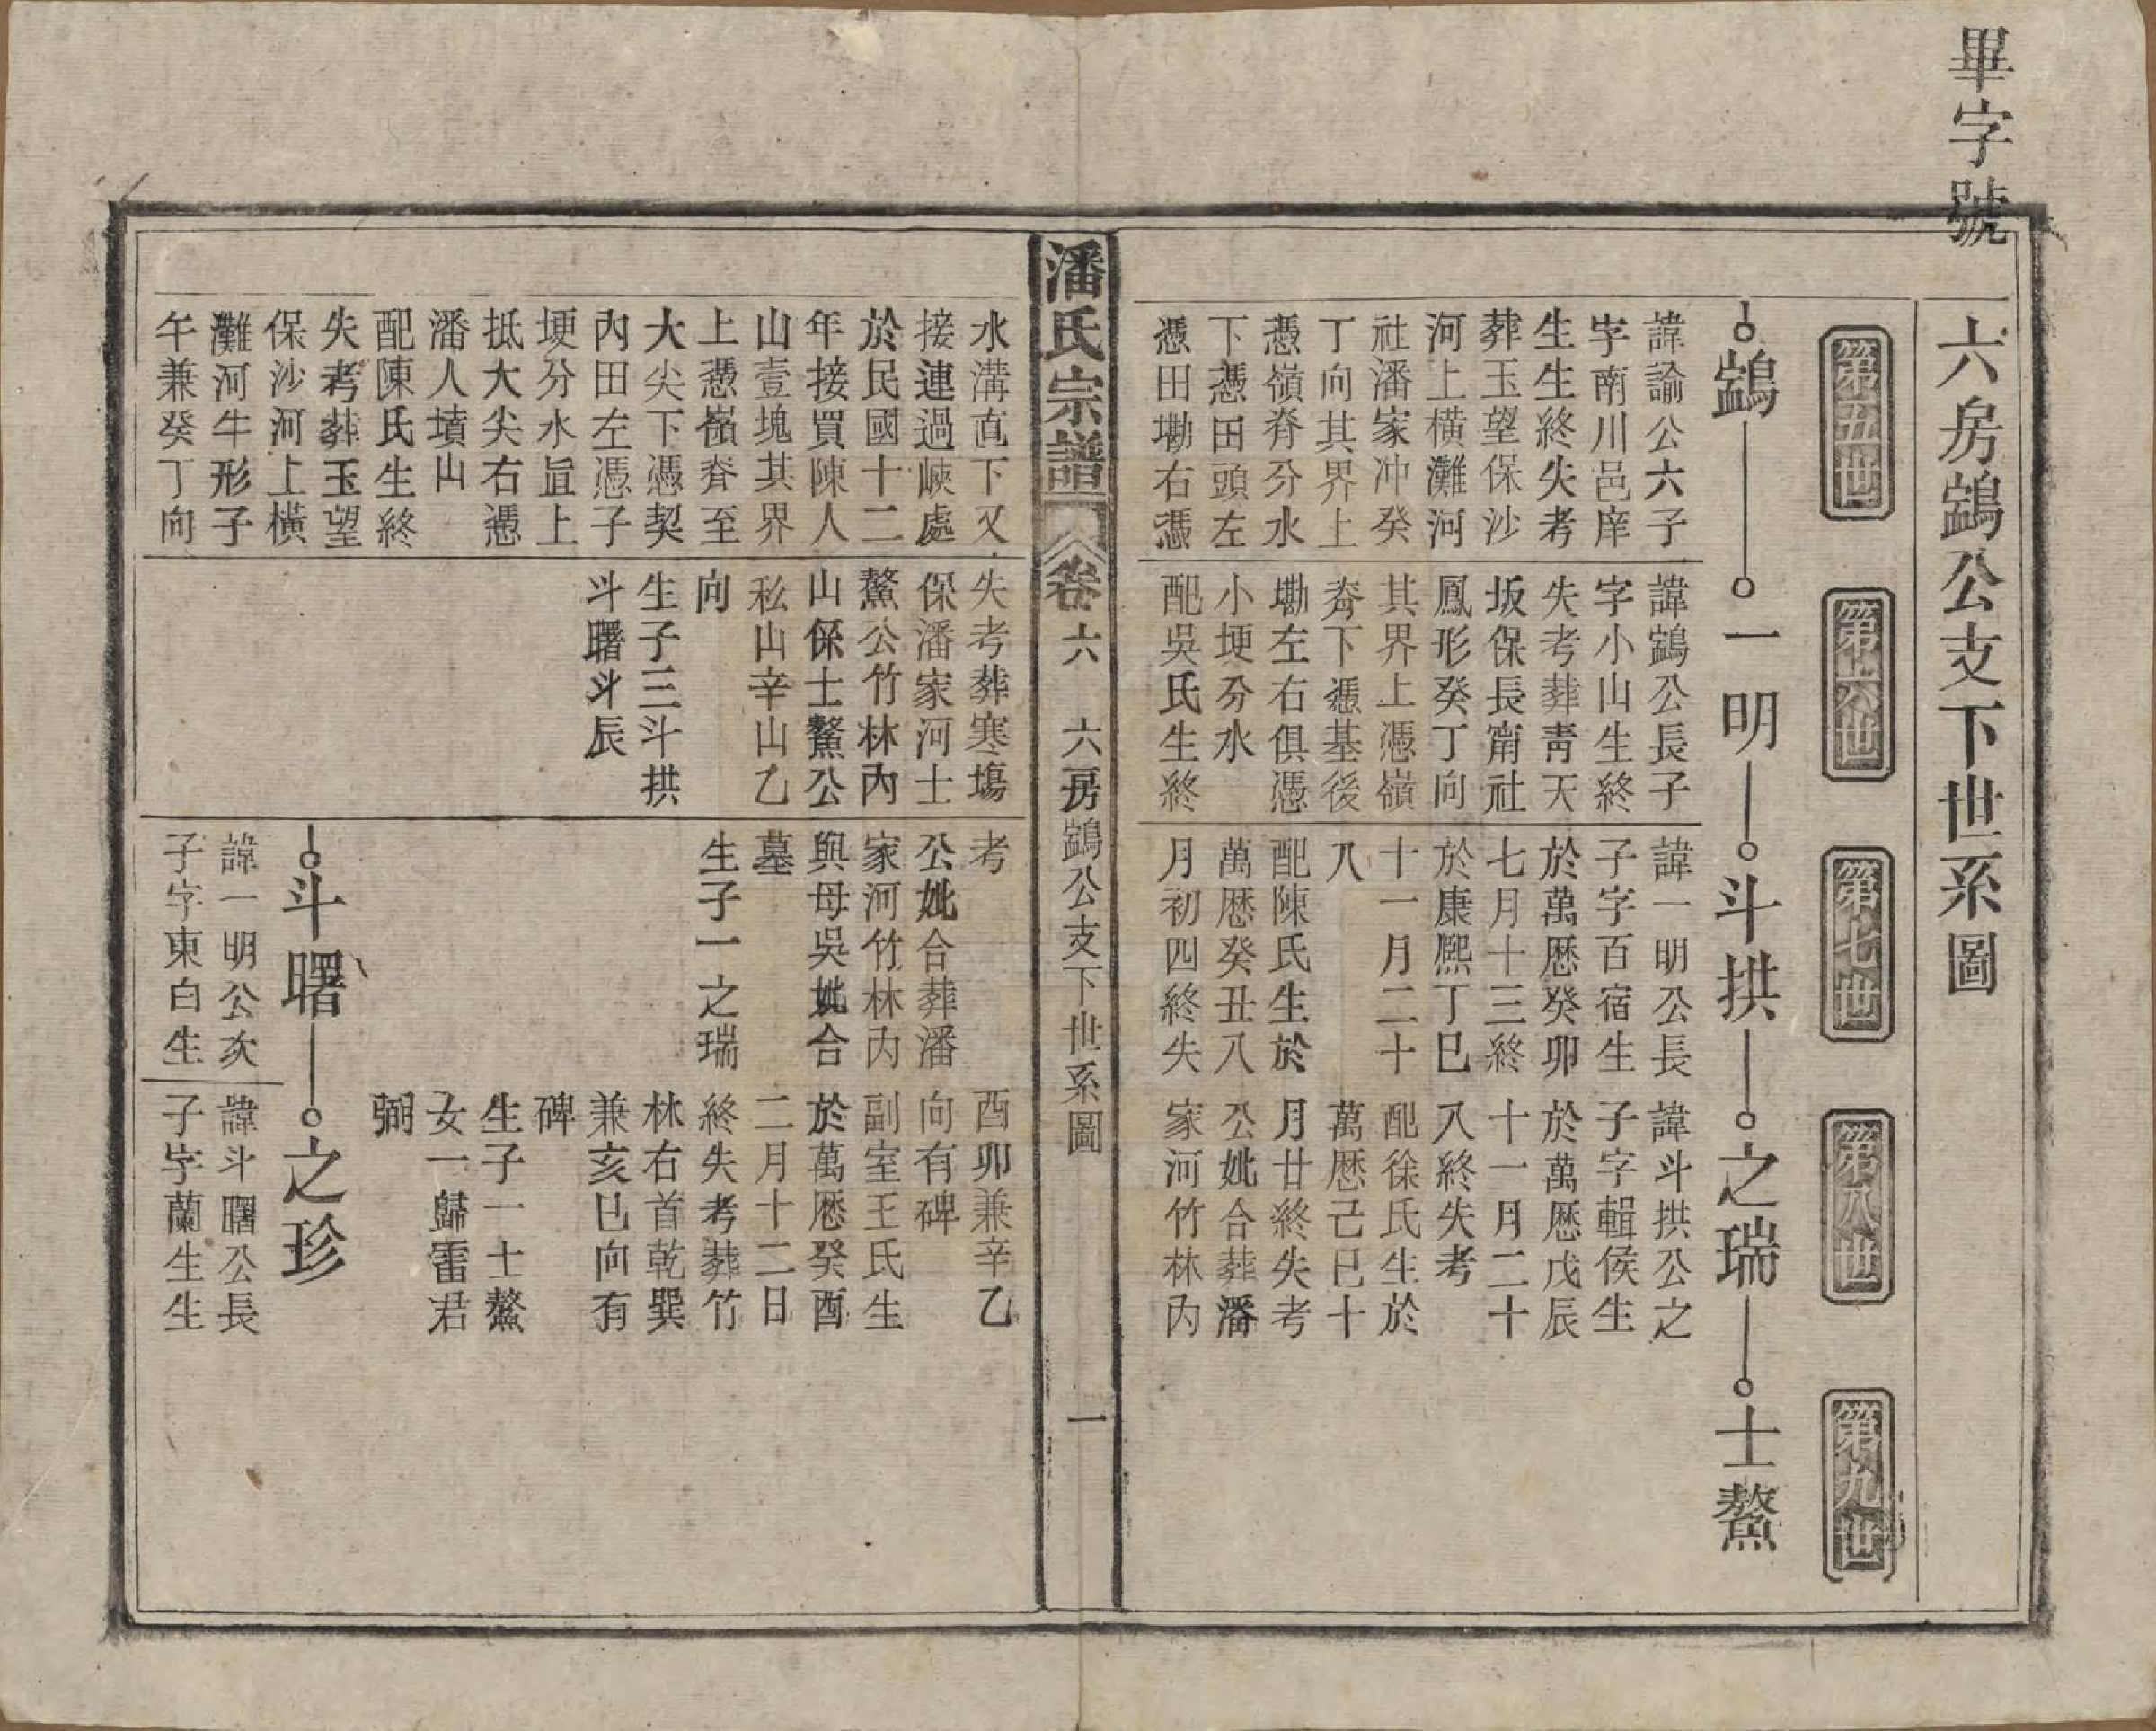 畢字號
六房鷂公支下世系圖
第五世
第六世
第七世
第八世
第九世
鷂
一明
斗拱
之瑞
士鰲
諱諭公六子
字南川邑庠
生生終失考
葬玉望保沙
河上橫灘河
社潘家冲癸
丁向其界上
憑嶺脊分水
下憑田頭左
憑田墈右憑
諱鷂公長子
字小山生終
失考葬靑天
坂保長甯社
鳳形癸丁向
其界上憑嶺
脊下憑基後
墈左右俱憑
小埂分水
配吳氏生終
諱一明公長
子字百宿生
於萬厯癸卯
七月十三終
於康熙丁巳
十一月二十
八
配陳氏生於
萬厯癸丑八
月初四終失
諱斗拱公之
子字輯侯生
於萬厯戊辰
十一月二十
八終失考
配徐氏生於
萬厯己巳十
月廿終失考
公妣合葬潘
家河竹林內
潘氏宗譜
卷六
六房鷂公支下世系圖
一
水溝直下又
接連過峽處
於民國十二
年接買陳人
山壹塊其界
上憑嶺脊至
大尖下憑契
內田左憑子
埂分水直上
抵大尖右憑
潘人墳山
配陳氏生終
失考葬玉望
保沙河上橫
灘河牛形子
午兼癸丁向
失考葬寒塲
保潘家河士
鰲公竹林內
山保士鰲公
私山辛山乙
向
生子三斗拱
斗曙斗辰
考
公妣合葬潘
家河竹林內
與母吳妣合
墓
生子一之瑞
酉卯兼辛乙
向有碑
副室王氏生
於萬厯癸酉
二月十二日
終失考葬竹
林右首乾巽
兼亥巳向有
碑
生子一士鰲
女一歸雷君
弼
斗曙
之珍
諱一明公次
子字東白生
諱斗曙公長
子字蘭生生